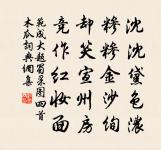 沈沈黛色濃
糝糝金沙絢
却笑宣州房
競作紅妝面
範成大題蜀果圖四首
木瓜詞典網集